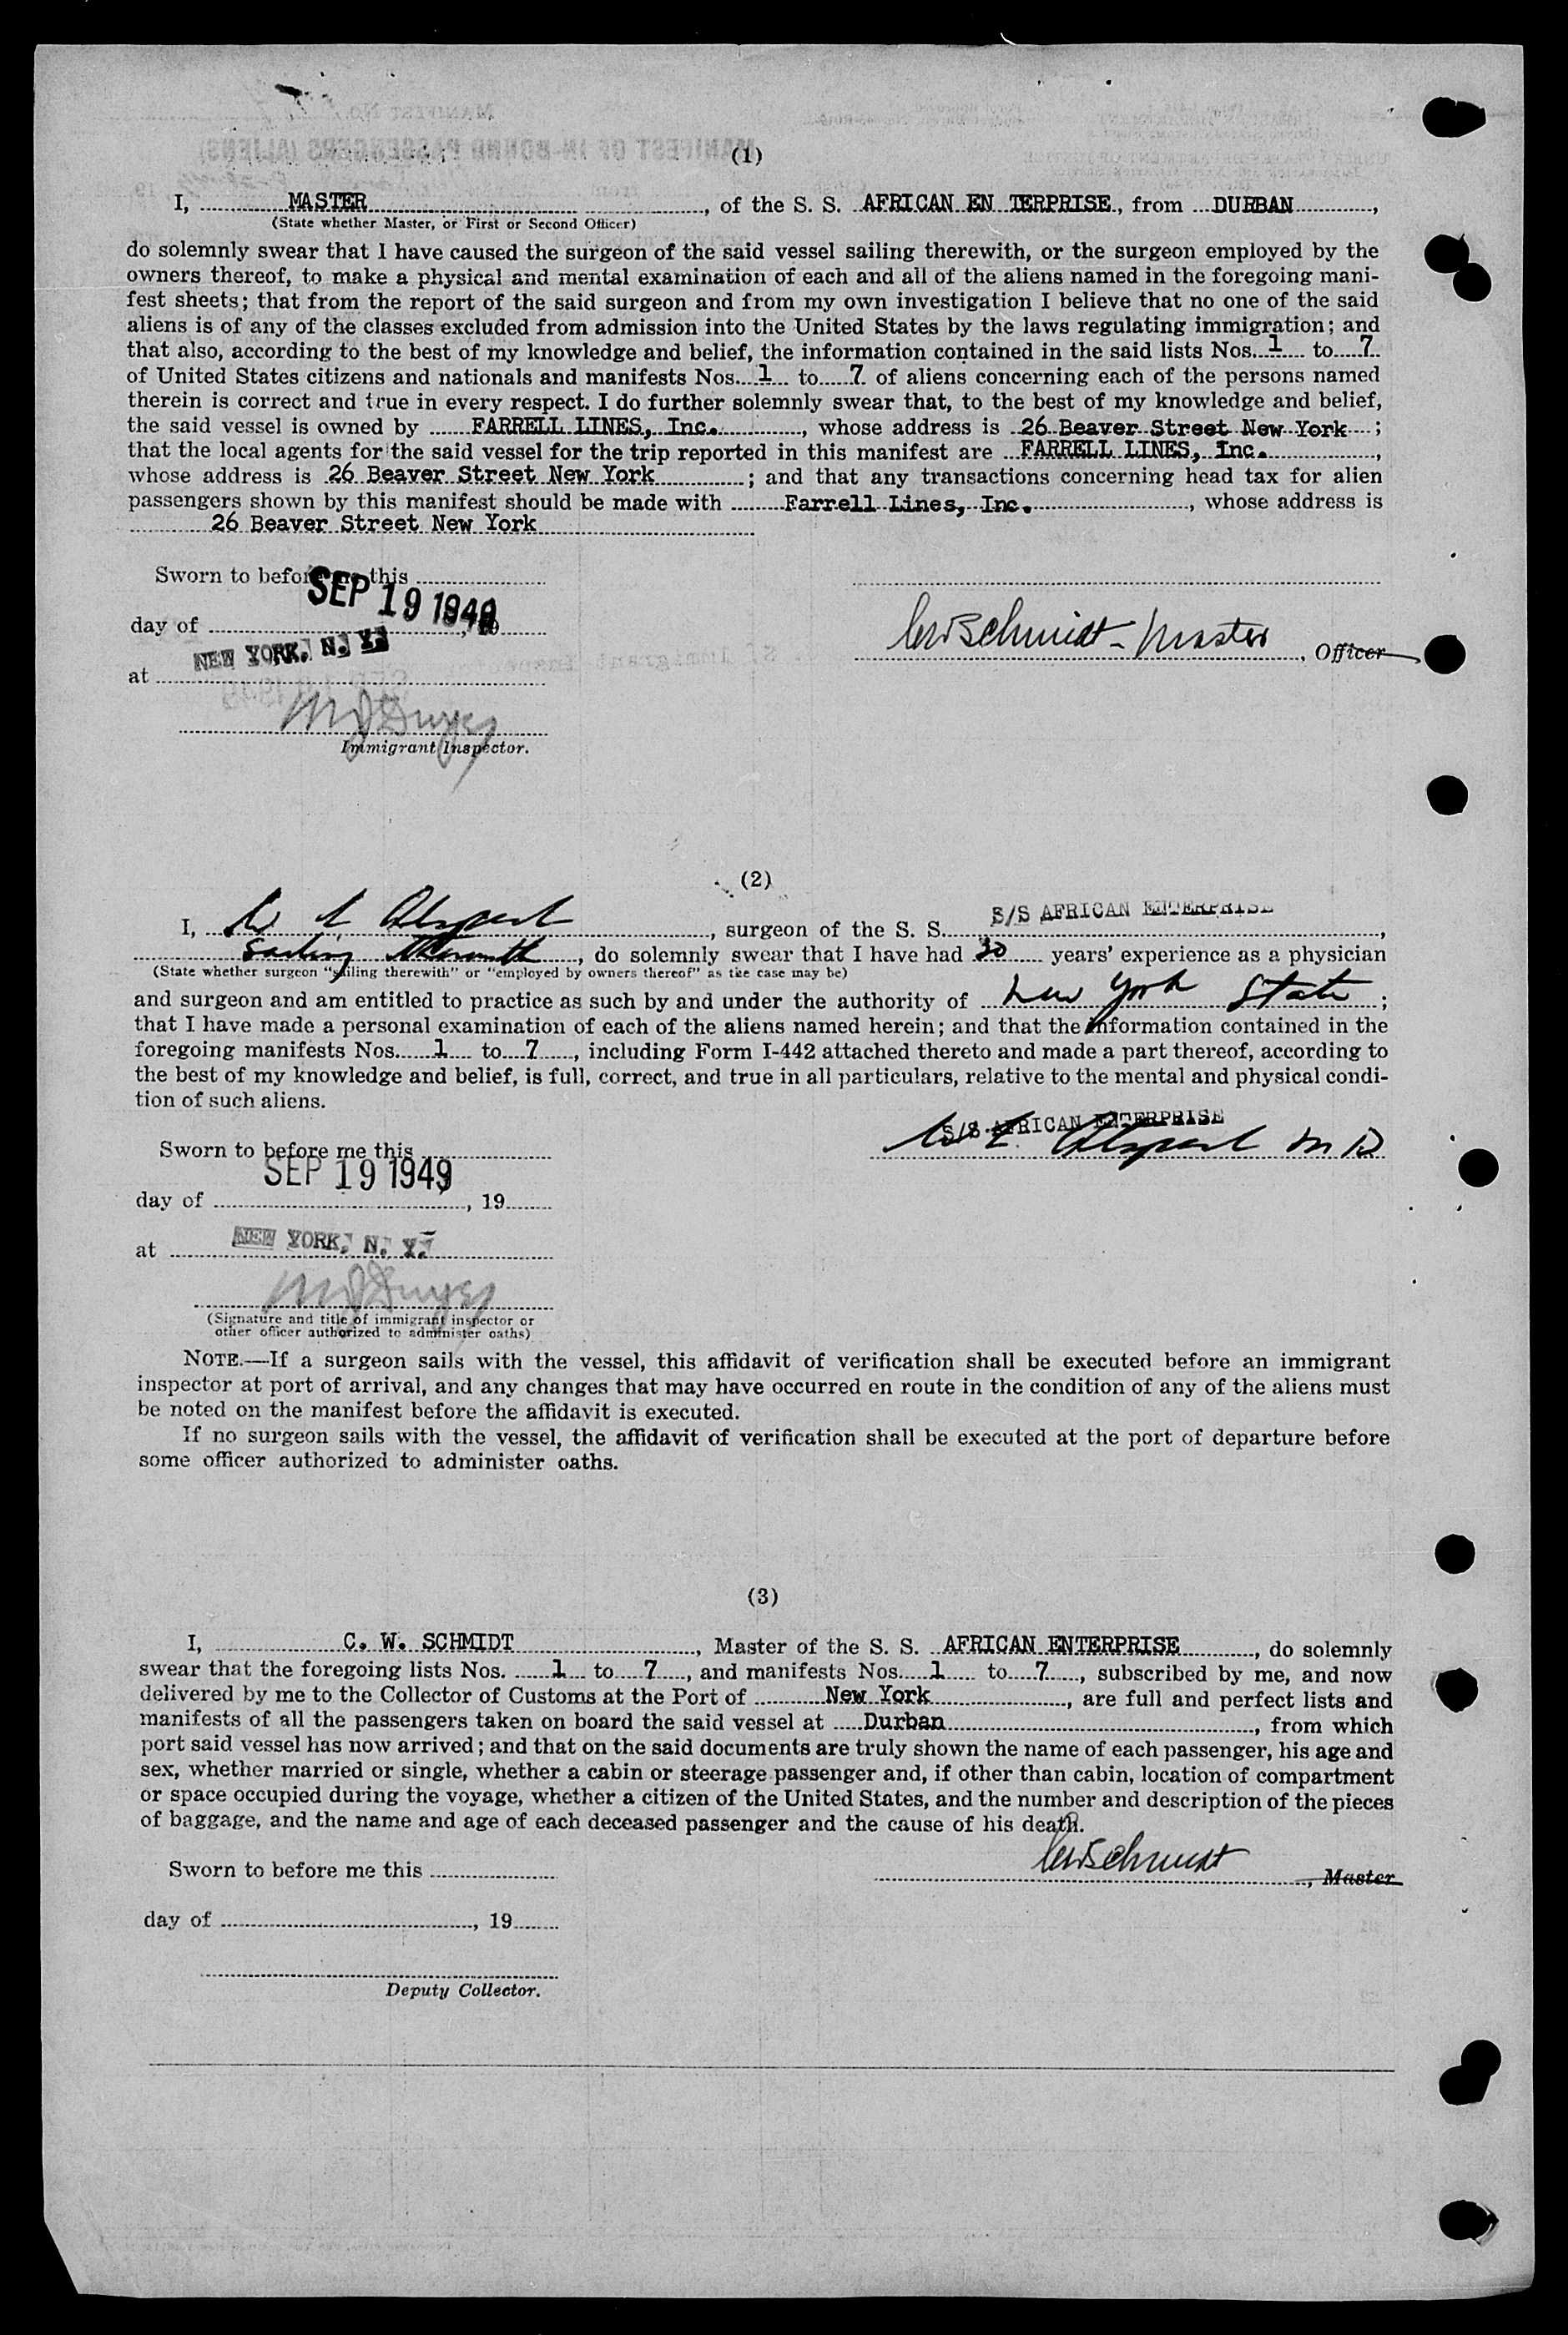 (1)
I, MASTER, of the S. S. AFRICAN EN TERPRISE, from DURBAN,
(State whether Master, or First or Second Officer)
do solemnly swear that I have caused the surgeon of the said vessel sailing therewith, or the surgeon employed by the
owners thereof, to make a physical and mental examination of each and all of the aliens named in the foregoing mani-
fest sheets; that from the report of the said surgeon and from my own investigation I believe that no one of the said
aliens is of any of the classes excluded from admission into the United States by the laws regulating immigration; and
that also, according to the best of my knowledge and belief, the information contained in the said lists Nos. 1 to 7
of United States citizens and nationals and manifests Nos. 1 to 7 of aliens concerning each of the persons named
therein is correct and true in every respect. I do further solemnly swear that, to the best of my knowledge and belief,
the said vessel is owned by FARRELL LINES, Inc., whose address is 26 Beaver Street New York;
that the local agents for the said vessel for the trip reported in this manifest are FARRELL LINES, Inc.,
whose address is 26 Beaver Street New York; and that any transactions concerning head tax for alien
passengers shown by this manifest should be made with Farrell Lines, Inc., whose address is
26 Beaver Street New York
Sworn to before me this
SEP 19 1949
day of , 19
CWSchmidt - Master, Officer
NEW YORK, N. Y.
at
Immigrant Inspector.
(2)
I, W E, surgeon of the S. S. S/S AFRICAN ENTERPRISE,
sailing therewith, do solemnly swear that I have had 30 years' experience as a physician
(State whether surgeon "sailing therewith" or "employed by owners thereof" as the case may be)
and surgeon and am entitled to practice as such by and under the authority of New York State;
that I have made a personal examination of each of the aliens named herein; and that the information contained in the
foregoing manifests Nos. 1 to 7, including Form I-442 attached thereto and made a part thereof, according to
the best of my knowledge and belief, is full, correct, and true in all particulars, relative to the mental and physical condi-
tion of such aliens.
S/S AFRICAN ENTERPRISE
W E M D
Sworn to before me this
SEP 19 1949
day of , 19
at NEW YORK, N. Y.
(Signature and title of immigrant inspector or
other officer authorized to administer oaths)
NOTE.—If a surgeon sails with the vessel, this affidavit of verification shall be executed before an immigrant
inspector at port of arrival, and any changes that may have occurred en route in the condition of any of the aliens must
be noted on the manifest before the affidavit is executed.
If no surgeon sails with the vessel, the affidavit of verification shall be executed at the port of departure before
some officer authorized to administer oaths.
(3)
I, C. W. SCHMIDT, Master of the S. S. AFRICAN ENTERPRISE, do solemnly
swear that the foregoing lists Nos. 1 to 7, and manifests Nos. 1 to 7, subscribed by me, and now
delivered by me to the Collector of Customs at the Port of New York, are full and perfect lists and
manifests of all the passengers taken on board the said vessel at Durban, from which
port said vessel has now arrived; and that on the said documents are truly shown the name of each passenger, his age and
sex, whether married or single, whether a cabin or steerage passenger and, if other than cabin, location of compartment
or space occupied during the voyage, whether a citizen of the United States, and the number and description of the pieces
of baggage, and the name and age of each deceased passenger and the cause of his death.
CWSchmidt, Master
Sworn to before me this
day of , 19
Deputy Collector.